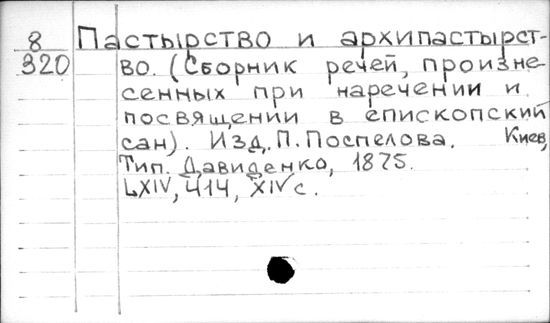 8 Пастырство и архипастырст-
320 во. (Сборник речей, произне-
сенных при наречении и
посвящении в епископский
сан). Изд. П. Поспелова. Киев,
Тип. Давиденко, 1875.
LXIV, 414, XIV с.